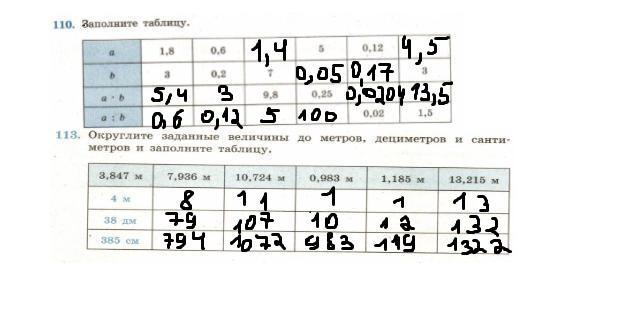 110. Заполните таблицу.
a 1,8 0,6 1,4 5 0,12 4,5
b 3 0,2 7 0,05 0,17 3
a · b 5,4 3 9,8 0,25 0,0204 13,5
a : b 0,6 0,12 5 100 0,02 1,5
113. Округлите заданные величины до метров, дециметров и санти-
метров и заполните таблицу.
3,847 м 7,936 м 10,724 м 0,983 м 1,185 м 13,215 м
4 м 8 11 1 1 13
38 дм 79 107 10 12 132
385 см 794 1072 983 119 1322